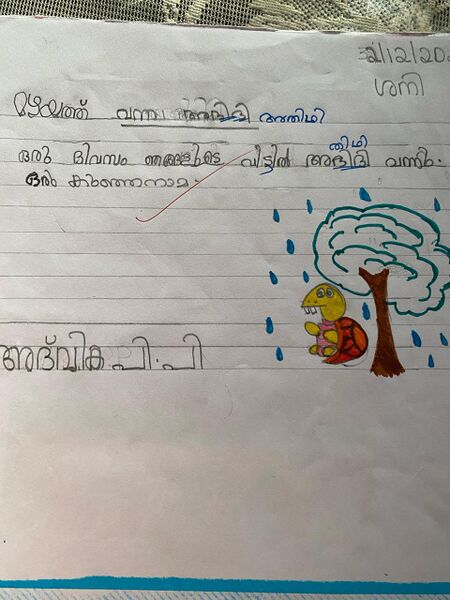 2/12/20
ശനി
മഴയത്ത് വന്ന അഥിതി അതിഥി
തിഥി
ഒരു ദിവസം ഞങ്ങളുടെ വീട്ടിൽ അഥിതി വന്നു.
ഒരു കുഞ്ഞനാമ.
അദ്വിക പി.പി